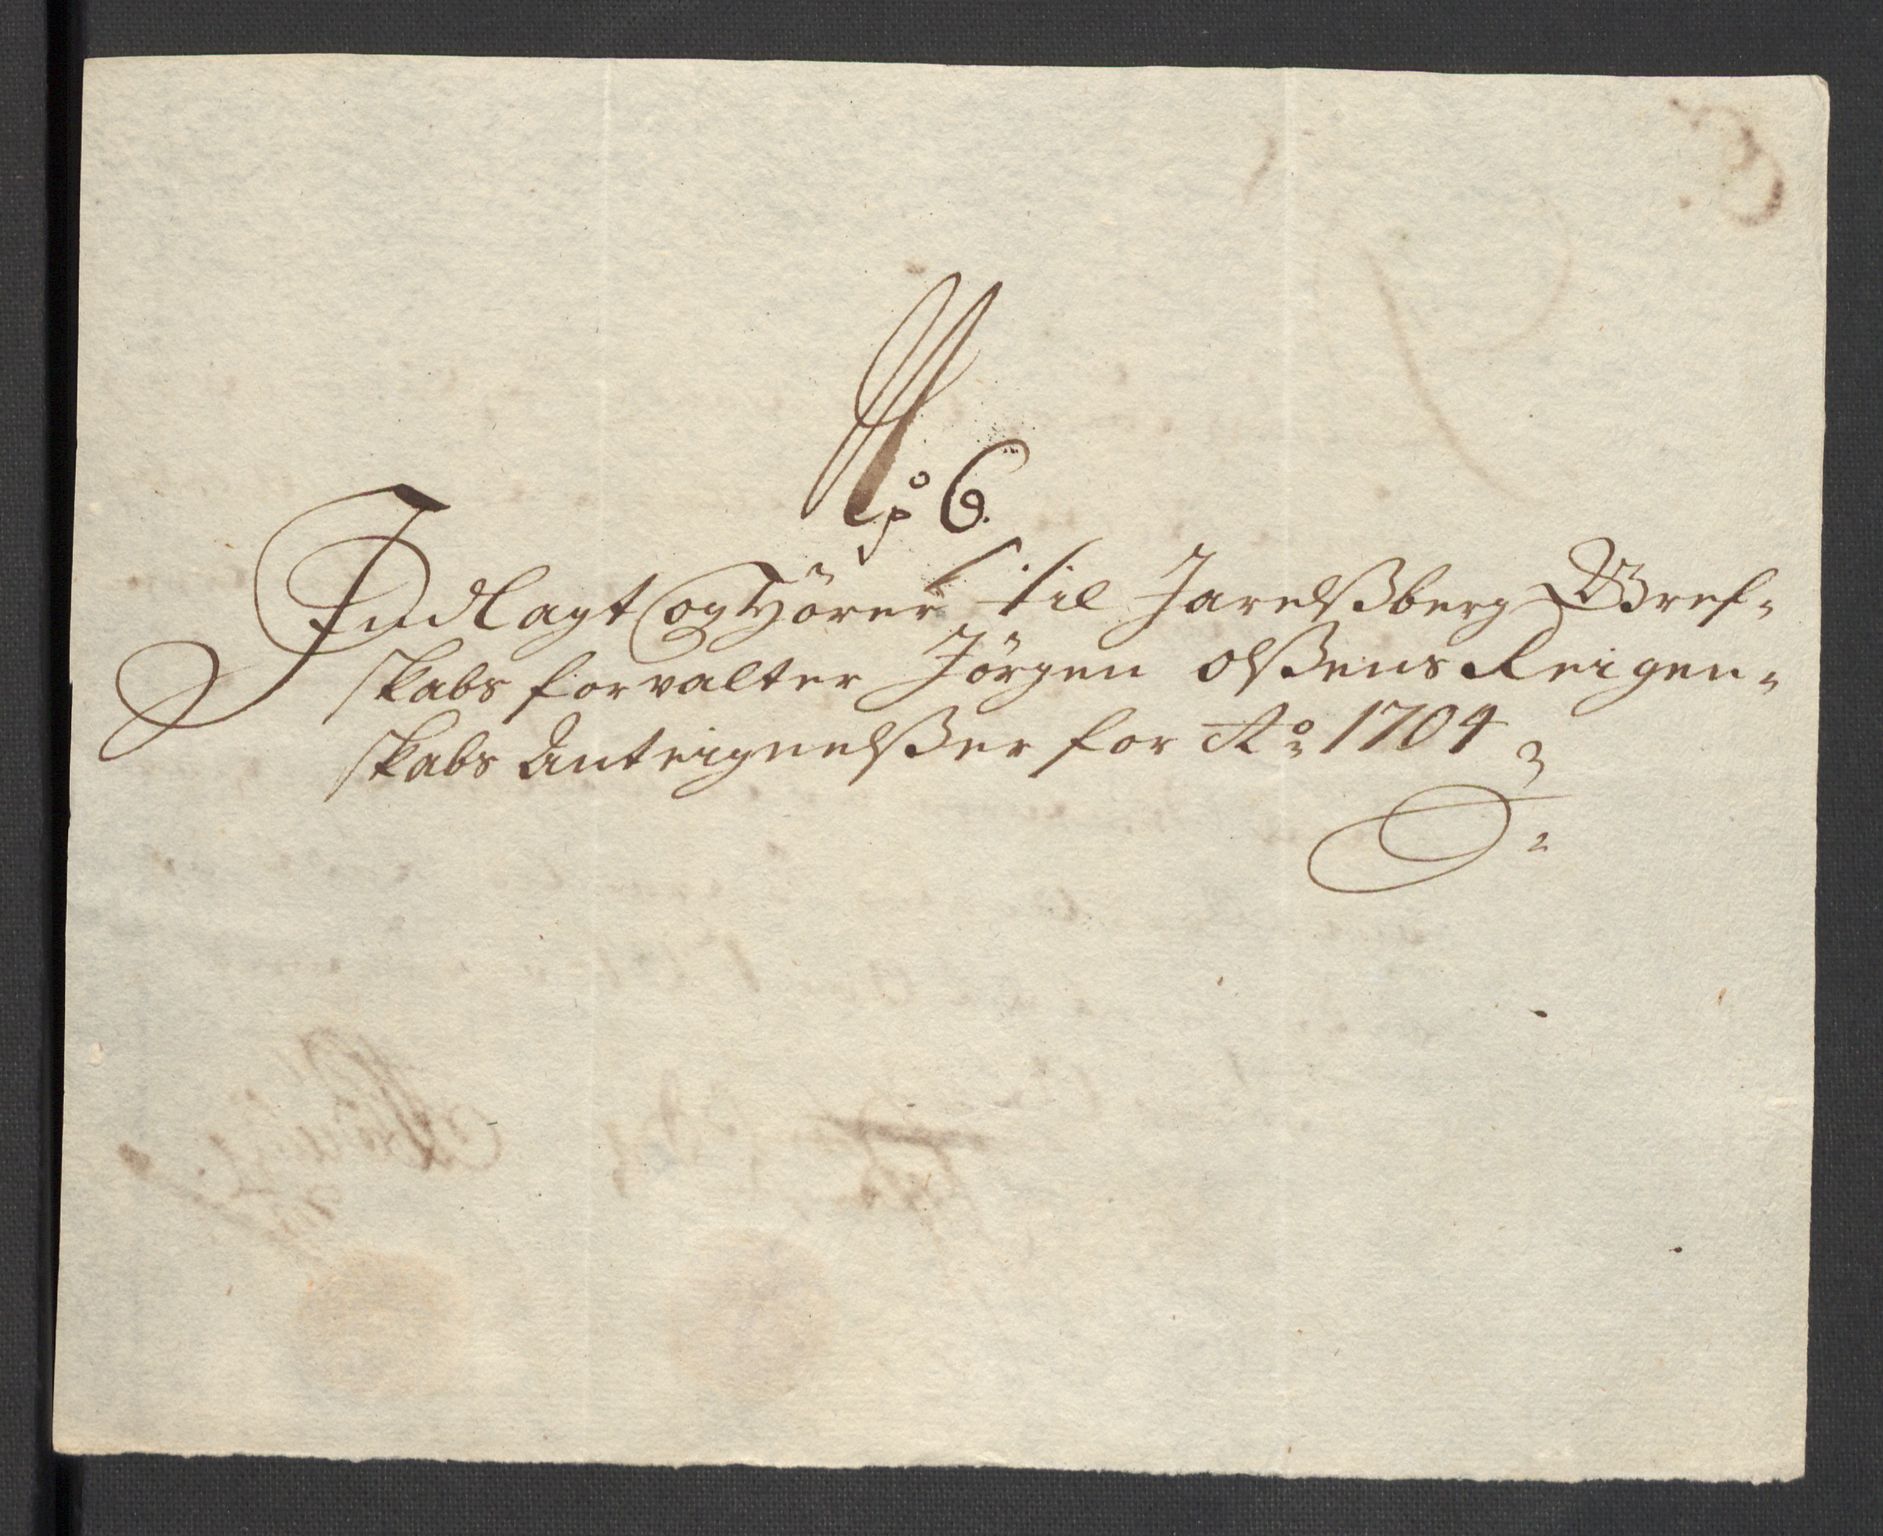 No 6.
Indlagt og Hörer til Jarelsßberg Gref-
skabs forvalter Jörgen Olsßens Reigen-
skabs Anteignelsßer for Ao 1704